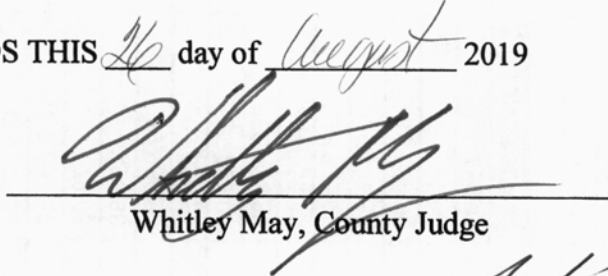 OS THIS 26 day of August 2019
Whitley May
Whitley May, County Judge